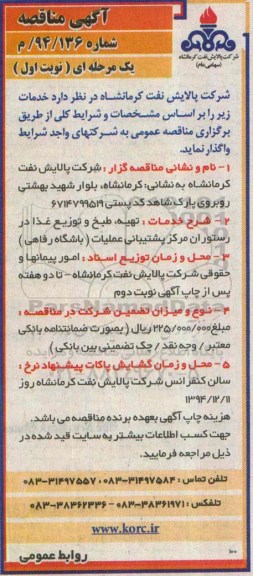 آگهی مناقصه
شماره ۹۴/۱۳۶/ م
یک مرحله ای ( نوبت اول )
شرکت پالایش نفت کرمانشاه
(سهامی عام)
شرکت پالایش نفت کرمانشاه در نظر دارد خدمات
زیر را بر اساس مشخصات و شرایط کلی از طریق
برگزاری مناقصه عمومی به شرکتهای واجد شرایط
واگذار نماید.
۱- نام و نشانی مناقصه گزار : شرکت پالایش نفت
کرمانشاه به نشانی: کرمانشاه، بلوار شهید بهشتی
روبروی پارک شاهد کد پستی ۶۷۱۴۷۹۹۵۱۹
۲- شرح خدمات : تهیه، طبخ و توزیع غذا در
رستوران مرکز پشتیبانی عملیات ( باشگاه رفاهی )
۳- محل و زمان توزیع اسناد : امور پیمانها و
حقوقی شرکت پالایش نفت کرمانشاه - تا دو هفته
پس از چاپ آگهی نوبت دوم
۴- نوع و میزان تضمین شرکت در مناقصه :
مبلغ ۲۲۵/۰۰۰/۰۰۰ ریال ( بصورت ضمانتنامه بانکی
معتبر / وجه نقد / چک تضمینی بین بانکی )
۵- محل و زمان گشایش پاکات پیشنهاد نرخ :
سالن کنفرانس شرکت پالایش نفت کرمانشاه روز
۱۳۹۴/۱۲/۱۱
هزینه چاپ آگهی بعهده برنده مناقصه می باشد.
جهت کسب اطلاعات بیشتر به سایت قید شده در
ذیل مراجعه فرمایید.
تلفن تماس : ۳۱۴۹۷۵۸۴-۰۸۳ ، ۳۱۴۹۷۵۵۷-۰۸۳
تلفکس : ۳۸۳۶۱۹۷۱-۰۸۳ - ۳۸۳۶۲۳۳۶-۰۸۳
www.korc.ir
۱۰۰
روابط عمومی